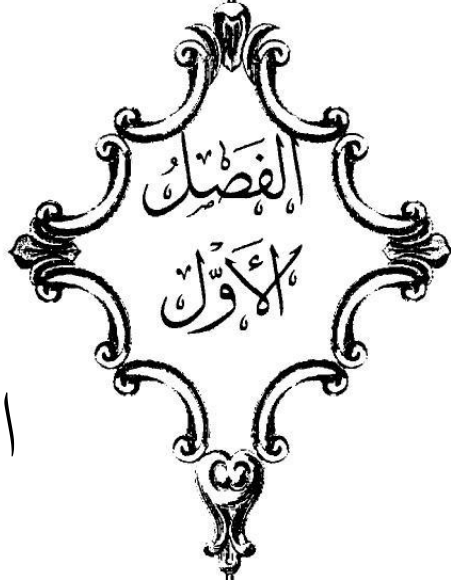 الفَصْلُ
الأَوَّل
١